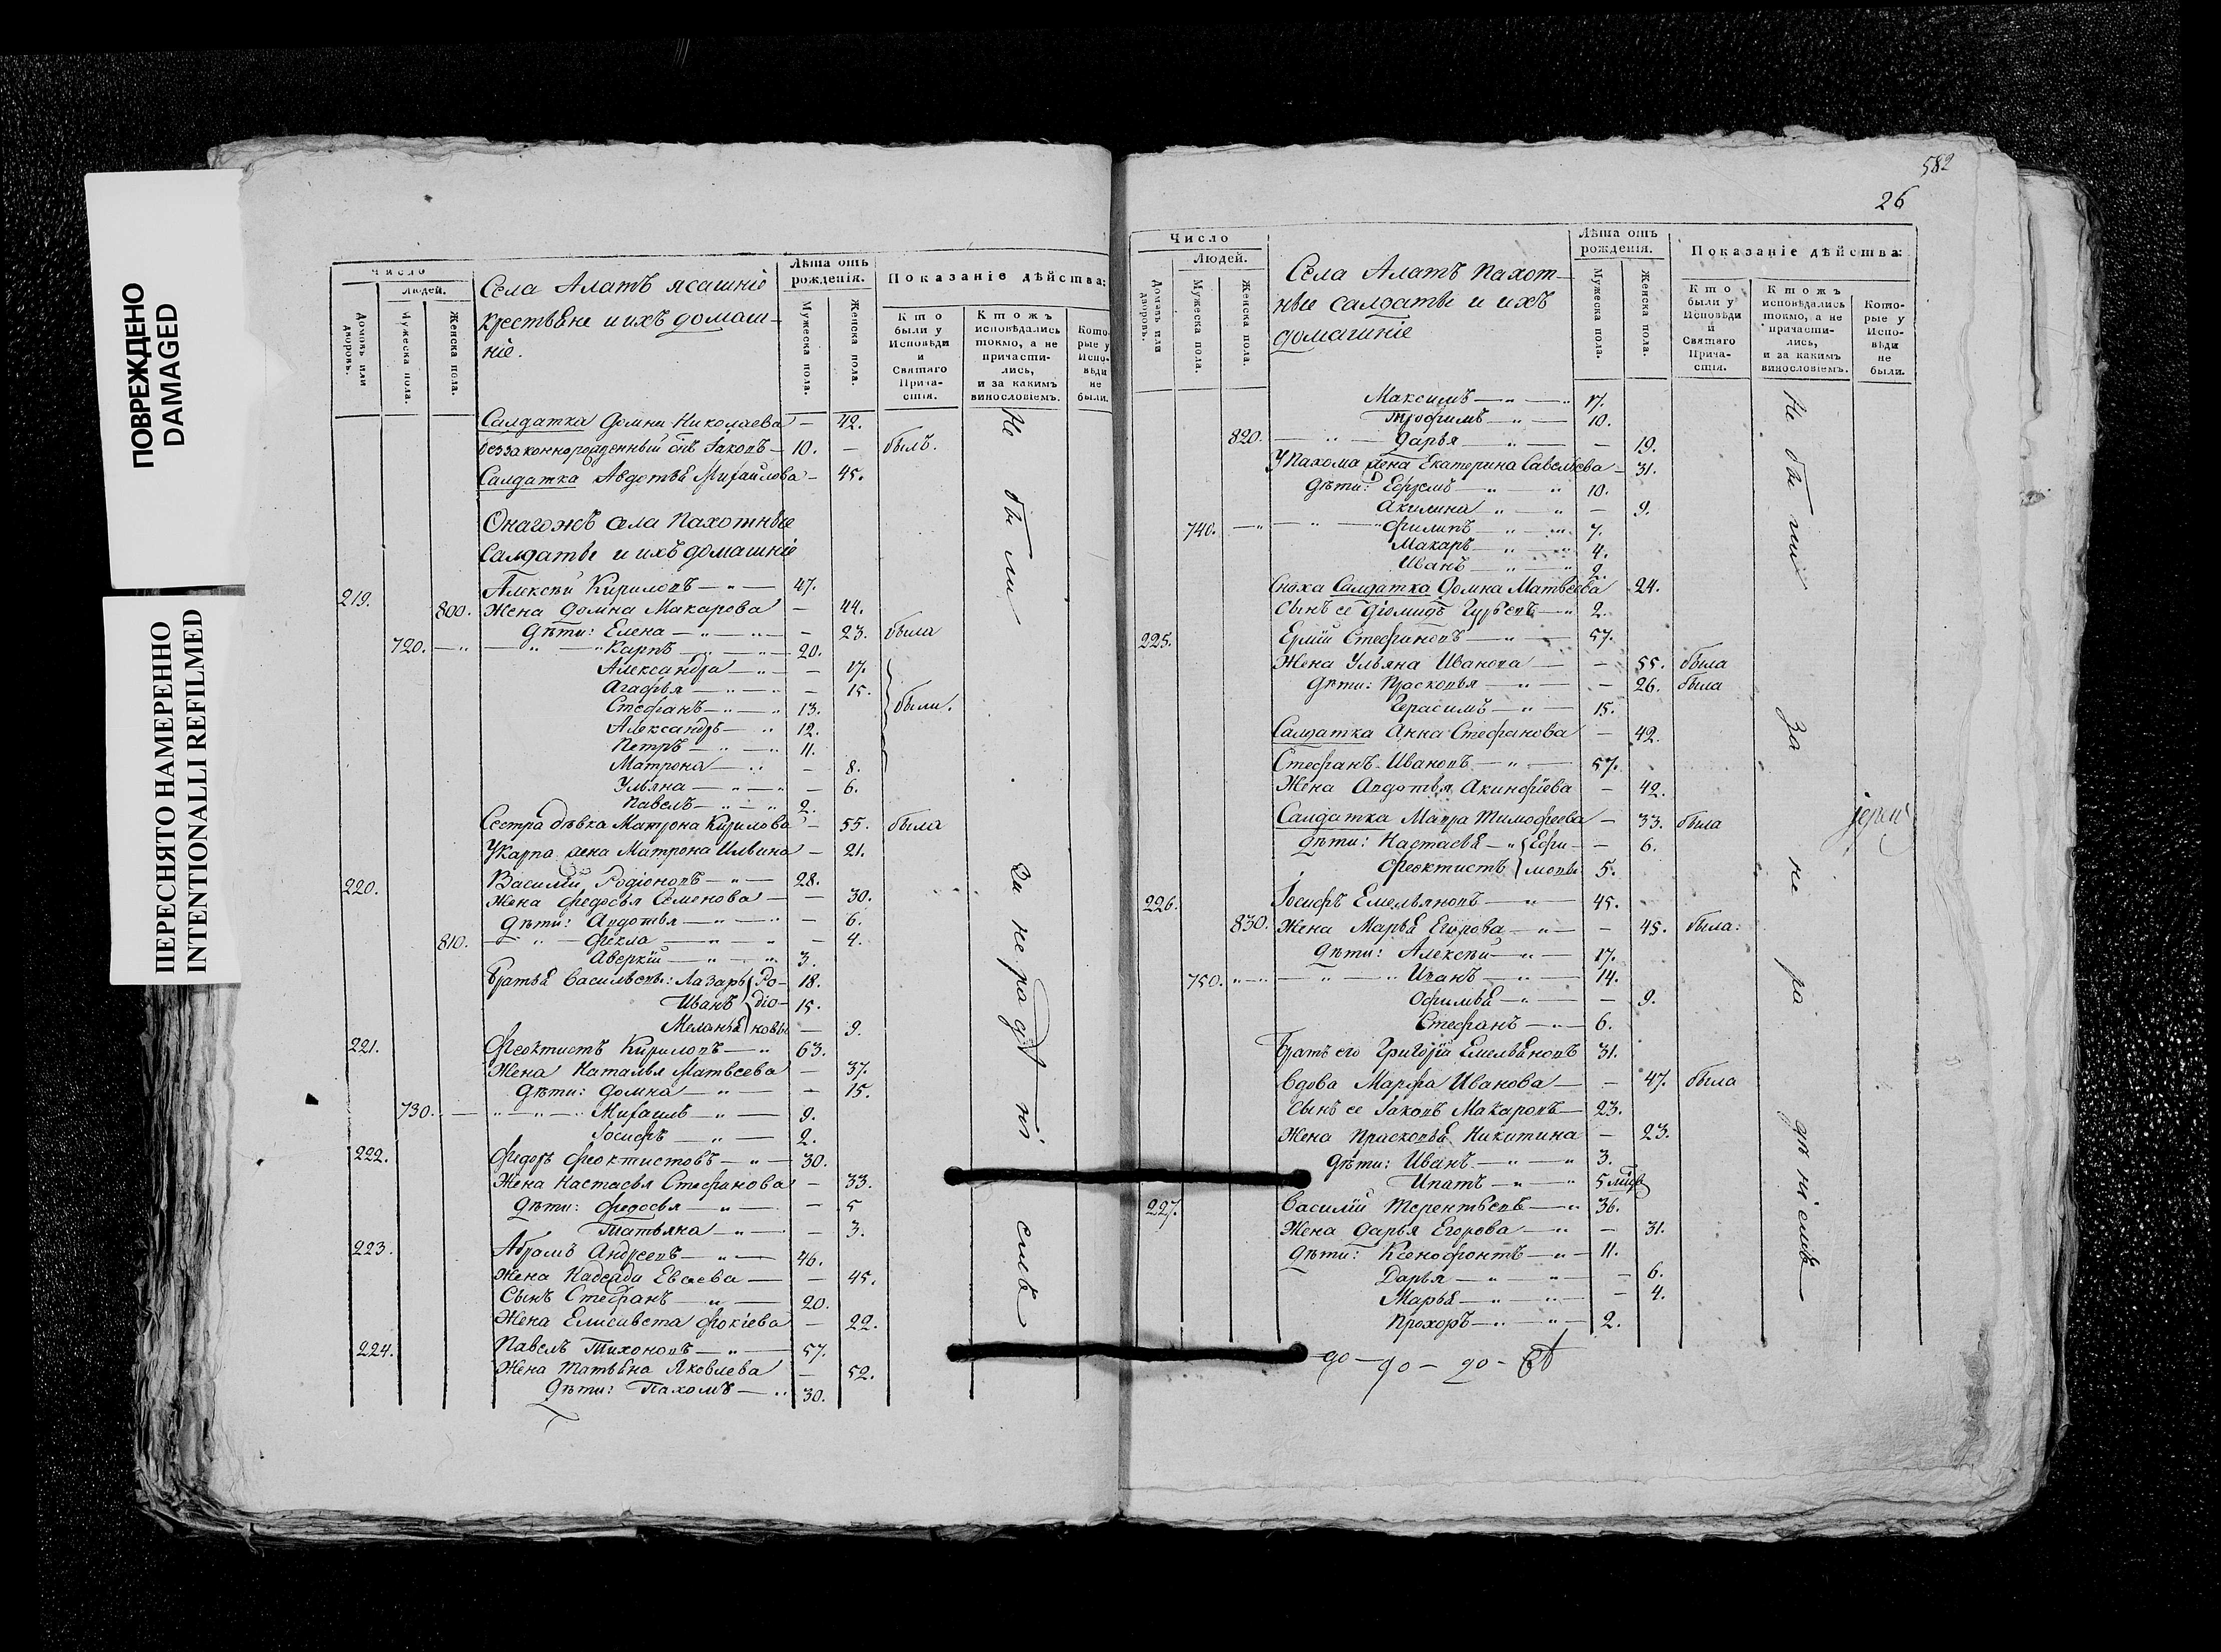 ПОВРЕЖДЕНО
DAMAGED
ПЕРЕСНЯТО НАМЕРЕННО
INTENTIONALLI REFILMED
Число
Людей.
Домовъ или дворовъ.
Мужеска пола.
Женска пола.
Села Алатъ ясашніе
крестьяне и ихъ домаш-
ніе.
Лѣта отъ рожденія.
Мужеска пола.
Женска пола.
Показаніе дѣйства:
Кто были у Исповѣди и Святаго Прича-стія.
Ктожъ исповѣдались токмо, а не причасти-лись, и за какимъ винословіемъ.
Кото-рые у Испо-вѣди не были.
Салдатка Домна Николаева — 42.
беззаконнорожденный снъ Іаковъ — 10. — былъ.
Салдатка Авдотья Михайлова — 45.
Онагожъ села пахотные
салдаты и ихъ домашніе
219. Алексѣй Кириловъ — 47.
800. Жена Домна Макарова — 44.
Дѣти: Елена — 23. была
720. Карпъ — 20.
Александра — 17.
Агафья — 15.
Стефанъ — 13. были.
Александръ — 12.
Петръ — 11.
Матрона — 8.
Ульяна — 6.
Павелъ — 2.
Сестра дѣвка Матрона Кирилова — 55. была
У Карпа жена Матрона Ильина — 21.
220. Василій Родіоновъ — 28.
Жена Федосья Семенова — 30.
Дѣти: Авдотья — 6.
810. Фекла — 4.
Аверкій — 3.
Братья Васильевы: Лазарь Ро- 18.
Иванъ діо- 15.
Меланья новы — 9.
221. Феоктистъ Кириловъ — 63.
Жена Наталья Матвеева — 37.
Дѣти: Домна — 15.
730. Михаилъ — 9.
Іосифъ — 2.
222. Федоръ Феоктистовъ — 30.
Жена Настасья Стефанова — 33.
Дѣти: Федосья — 5
Татьяна — 3.
223. Абрамъ Андреевъ — 46.
Жена Надежда — 45.
Сынъ Стефанъ — 20.
Жена Елисавета Фокіева — 22.
224. Павелъ Тихоновъ — 57.
Жена Татьяна Яковлева — 52.
Дѣти: Пахомъ — 30.
Не были
За не радѣніемъ
582
26
Число
Людей.
Домовъ или дворовъ.
Мужеска пола.
Женска пола.
Села Алатъ пахот-
ные салдаты и ихъ
домашніе
Лѣта отъ рожденія.
Мужеска пола.
Женска пола.
Показаніе дѣйства:
Кто были у Исповѣди и Святаго Прича-стія.
Ктожъ исповѣдались токмо, а не причасти-лись, и за какимъ винословіемъ.
Кото-рые у Испо-вѣди не были.
Максимъ — 17.
Трофимъ — 10.
820. Дарья — 19.
У Пахома жена Екатерина Савельева — 31.
Дѣти: Ефремъ — 10.
Акилина — 9.
740. Филипъ — 7.
Макаръ — 4.
Иванъ — 2.
Сноха Салдатка Домна Матвеева 24.
Сынъ ее Діомидъ Гурьевъ — 2.
225. Ермій Стефановъ — 57.
Жена Ульяна Иванова — 55. была
Дѣти: Прасковья — 26. была
Герасимъ — 15.
Салдатка Анна Стефанова — 42.
Стефанъ Ивановъ — 57.
Жена Авдотья Акинфіева — 42.
Салдатка Мавра Тимофеева — 33. была
Дѣти: Настасья — Ефи- — 6.
Феоктистъ мовы 5.
226. Іосифъ Емельяновъ — 45.
830. Жена Марья Егорова — 45. была.
Дѣти: Алексѣй — 17.
750. Иванъ — 14.
Офимья — 9.
Стефанъ — 6.
Братъ его Григорій Емельяновъ 31.
Вдова Марфа Иванова — 47. была
Сынъ ее Іаковъ Макаровъ — 23.
Жена Прасковья Никитина — 23.
Дѣти: Иванъ — 3.
Ипатъ — 5
227. Василій Терентьевъ — 36.
Жена Дарья Егорова — 31.
Дѣти: Ксенофонтъ — 11.
Дарья — 6.
Марья — 4.
Прохоръ — 2.
Не были
За не радѣніемъ
іереи